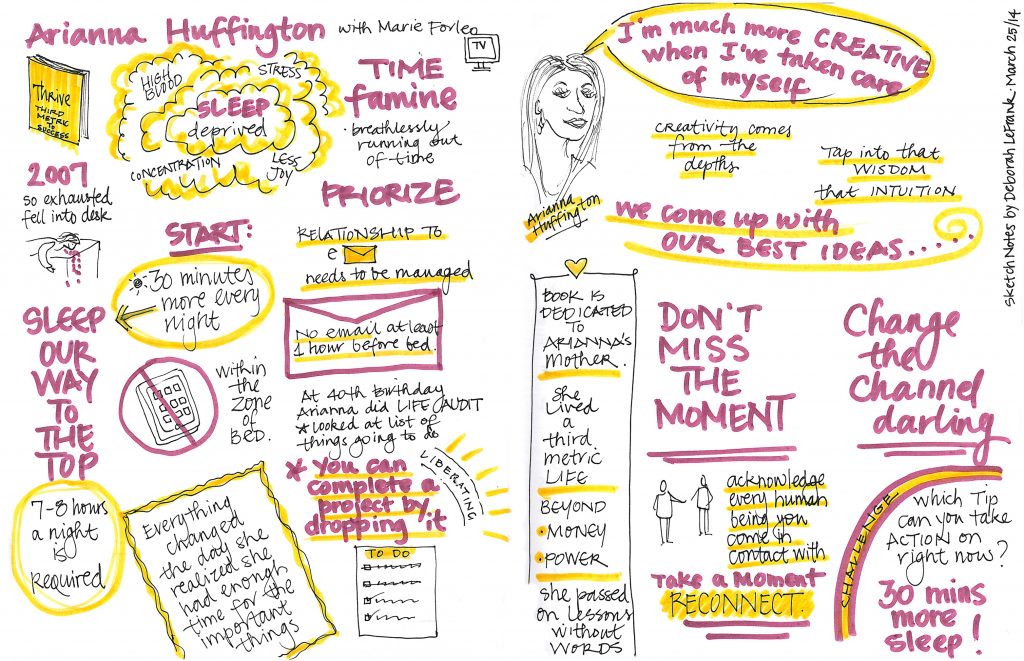 Arianna Huffington with Marie Forleo
TV
Thrive
THIRD
METRIC
to
SUCCESS
HIGH
BLOOD
STRESS
SLEEP
deprived
CONCENTRATION
LESS
JOY
TIME
famine
• breathlessly
running out
of time
2007
so exhausted
fell into desk
PRIORIZE
START:
30 minutes
more every
night
RELATIONSHIP TO
e
needs to be managed
SLEEP
OUR
WAY
TO
THE
TOP
No email at least
1 hour before bed.
within
the
zone
of
BED.
At 40th Birthday
Arianna did LIFE AUDIT
* Looked at list of
things going to do
* You can
complete a
project by
dropping it
LIBERATING
7-8 hours
a night
is
Required
Everything
changed
the day she
realized she
had enough
time for the
important
things
TO DO
I'm much more CREATIVE
when I've taken care
of myself
creativity comes
from the
depths
Tap into that
WISDOM
that INTUITION
Arianna
Huffington
we come up with
OUR BEST IDEAS.....
BOOK IS
DEDICATED
TO
ARIANNA'S
Mother.
She
Lived
a
third
metric
LIFE
BEYOND
• MONEY
• POWER
she passed
on Lessons
without
WORDS
DON'T
MISS
THE
MOMENT
acknowledge
every human
being you
come in
contact with
Take a Moment
RECONNECT.
Change
the
Channel
darling
CHALLENGE
which Tip
can you take
ACTION on
right now?
30 mins
more
sleep!
Sketch Notes by Deborah LeFrank. March 25/14